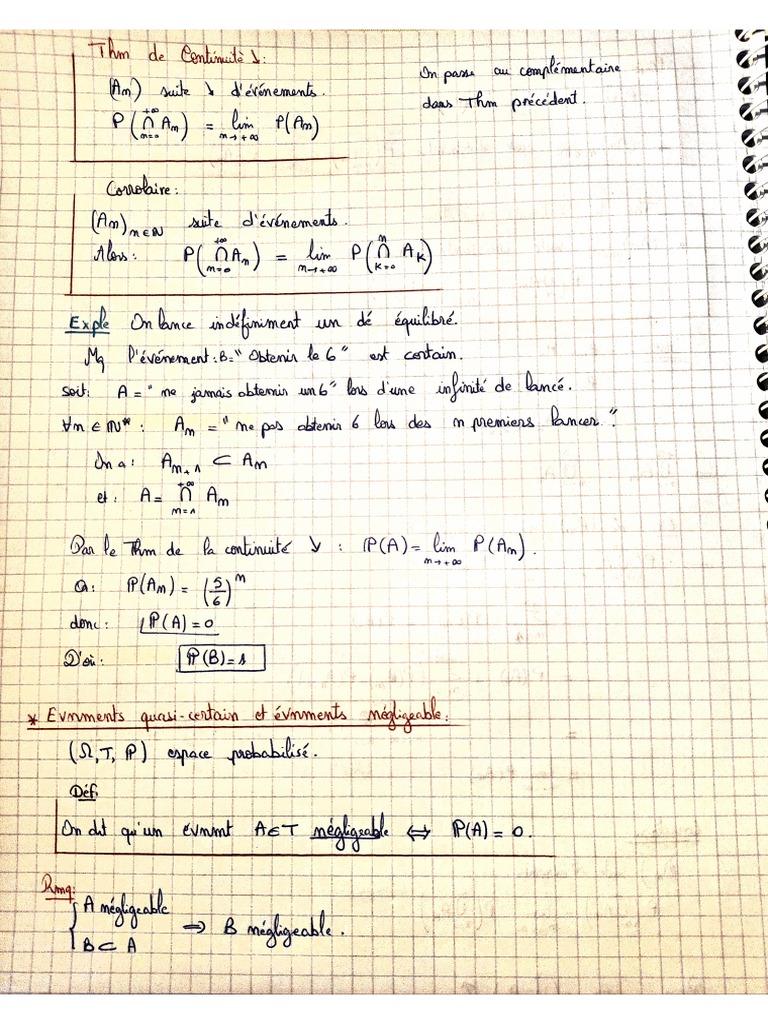 Thm de Continuité ↘ :
(An) suite ↘ d'événements.
P(⋂_{n=0}^{+∞} An) = lim_{n→+∞} P(An)
On passe au complémentaire
dans Thm précédent.
Corrolaire :
(An)_{n∈ℕ} suite d'événements.
Alors : P(⋂_{n=0}^{+∞} An) = lim_{n→+∞} P(⋂_{k=0}^{n} Ak)
Exple On lance indéfiniment un dé équilibré.
Mq l'événement : B = "Obtenir le 6" est certain.
soit : A = " ne jamais obtenir un 6" lors d'une infinité de lancé.
∀n ∈ ℕ* : An = " ne pas obtenir 6 lors des n premiers lancer."
On a : An+1 ⊂ An
et : A = ⋂_{n=1}^{+∞} An
Par le Thm de la continuité ↘ : ℙ(A) = lim_{n→+∞} P(An).
Or : ℙ(An) = (5/6)^n
donc : ℙ(A) = 0
D'où : ℙ(B) = 1
* Evnments quasi-certain et évnments négligeable :
(Ω, T, ℙ) espace probabilisé.
Déf :
On dit qu'un évnmt A ∈ T négligeable ⇔ ℙ(A) = 0.
Rmq :
{ A négligeable
B ⊂ A ⇒ B négligeable.